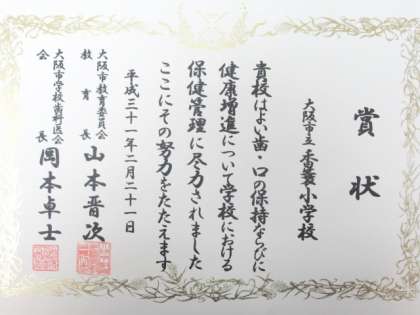 賞状
大阪市立 香簑小学校
貴校はよい歯・口の保持ならびに
健康増進について学校における
保健管理に尽力されました
ここにその努力をたたえます
平成三十一年二月二十一日
大阪市教育委員会
教育長 山本晋次
大阪市学校歯科医会
会長 岡本卓士